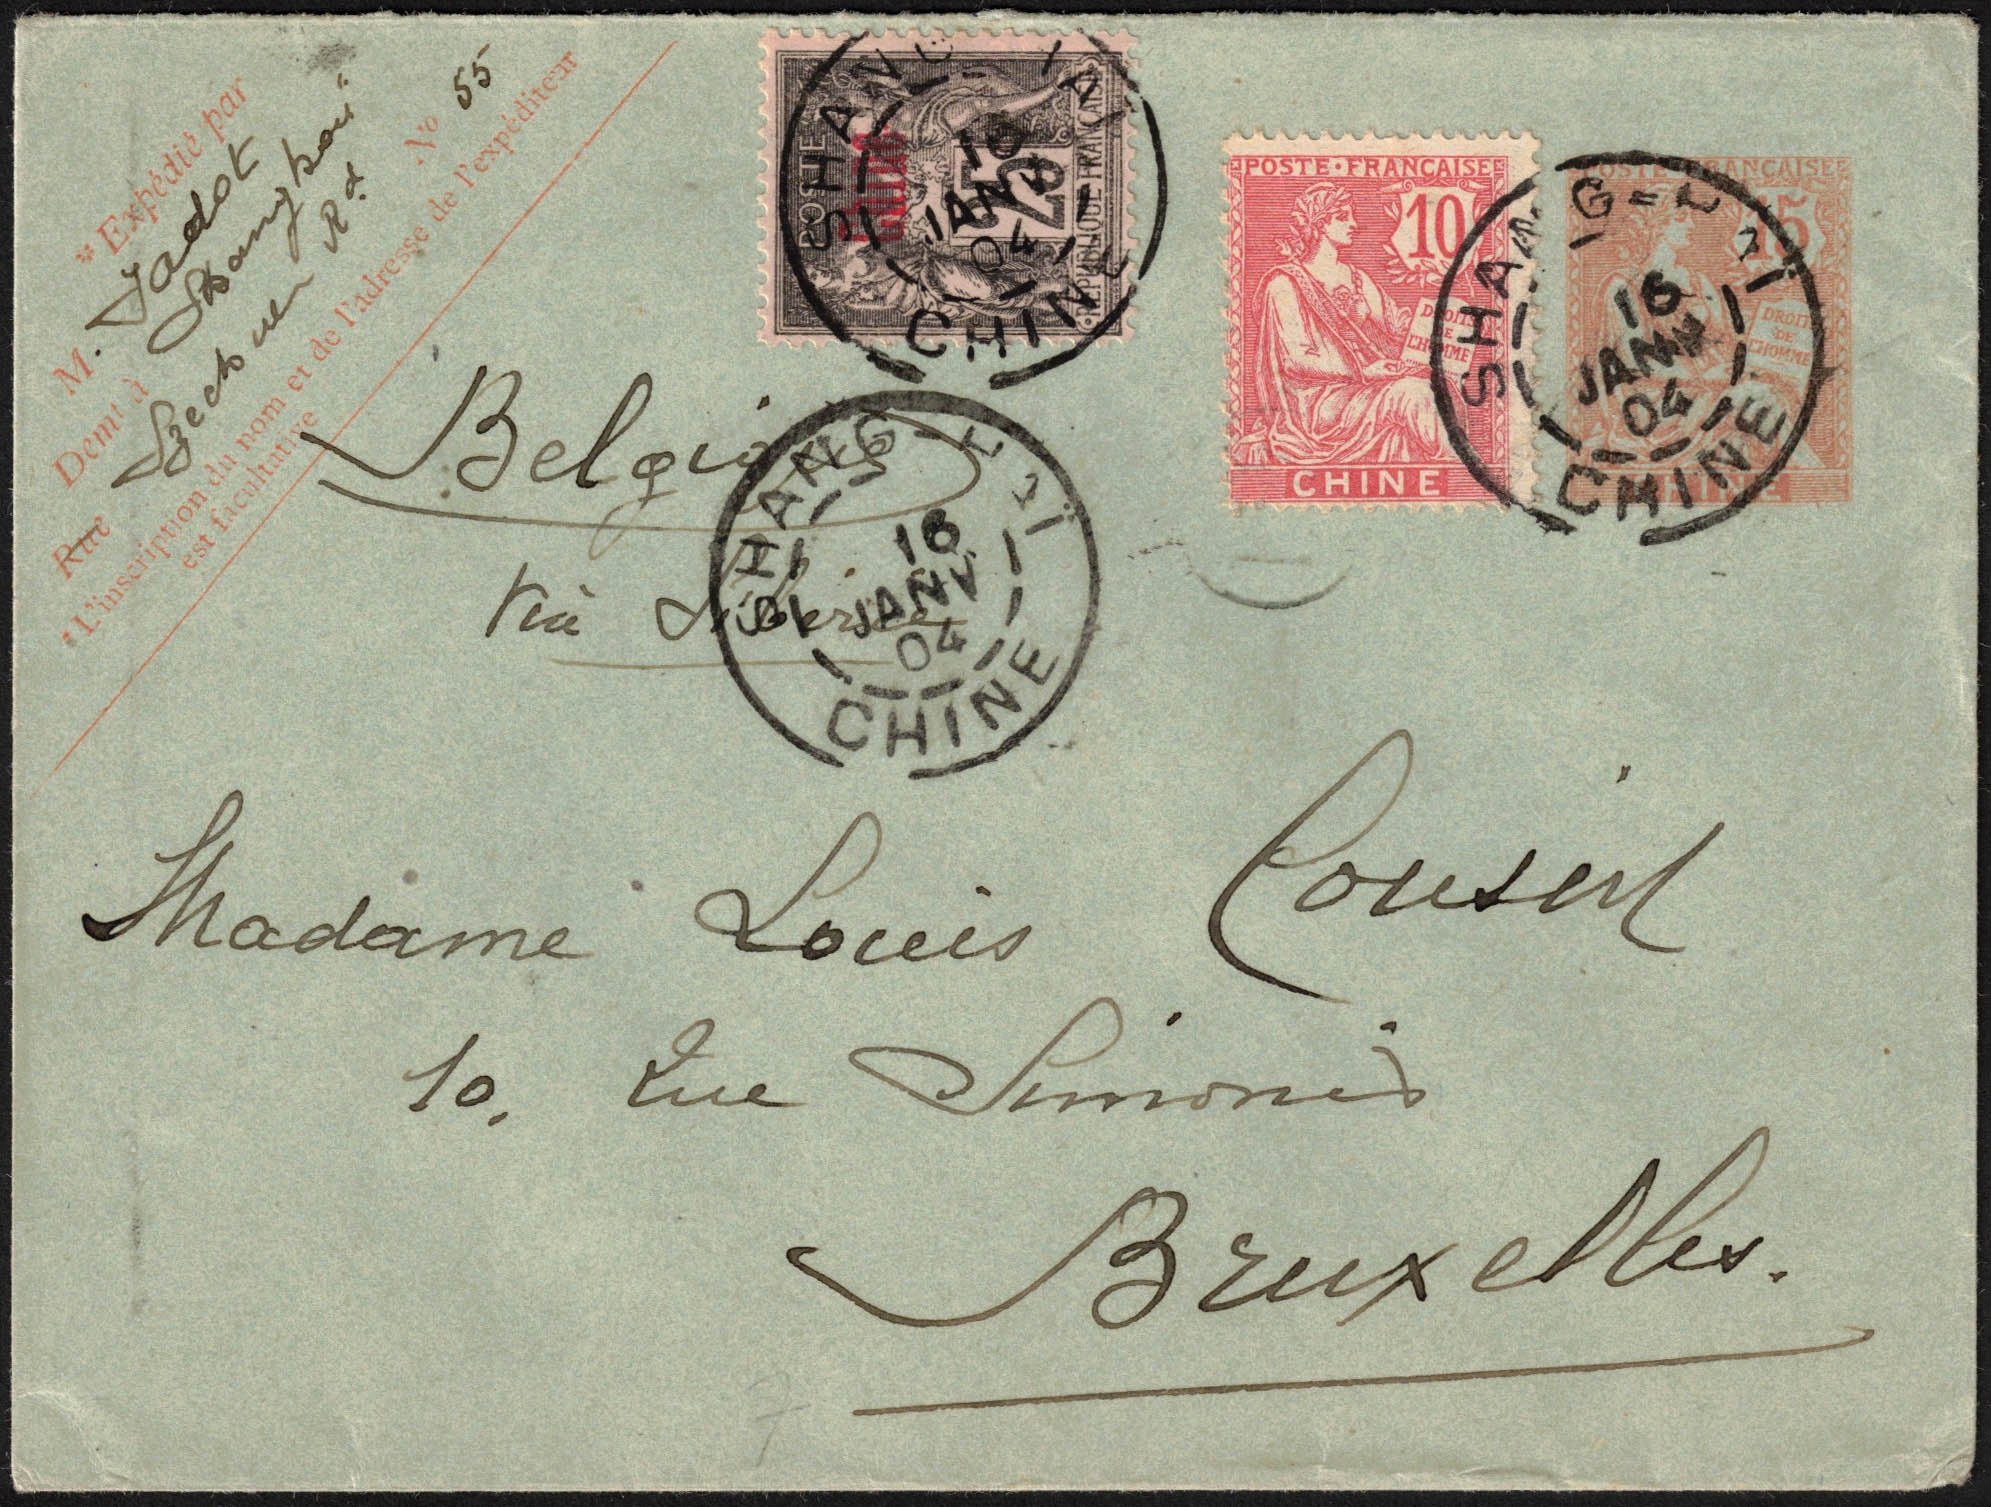 * Expédié par
M. Jadot
Demt à Shanghaï
Rue Szechuen Rd No 55
* L'inscription du nom et de l'adresse de l'expéditeur
est facultative
POSTE
Chine
25
REPUBLIQUE FRANÇAISE
SHANG-HAÏ
16
JANV
04
CHINE
POSTE FRANÇAISE
10
DROITS
DE
L'HOMME
CHINE
POSTE FRANÇAISE
15
DROITS
DE
L'HOMME
CHINE
SHANG-HAÏ
16
JANV
04
CHINE
Belgique
Via Sibérie
SHANG-HAÏ
16
JANV
04
CHINE
Madame Louis Cousin
10, Rue Simonis
Bruxelles.